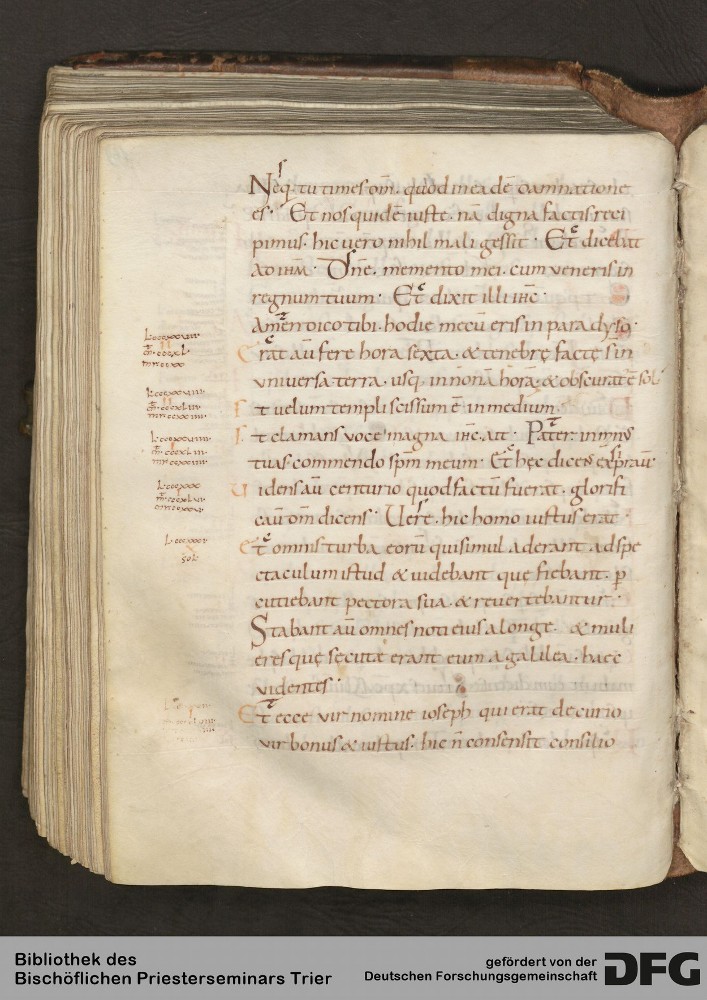 Neq; tu times om̄. quod in ea dē damnatione
es. Et nos quidē iuste. nā digna factis reci
pimus. hic vero nihil mali gessit. Et dicebat
ad ihm. Dn̄e. memento mei. cum veneris in
regnum tuum. Et dixit illi ihc.
Amen dico tibi. hodie mecū eris in paradyso.
Erat aū fere hora sexta. & tenebrę factę s̄ in
universa terra. usq. in nonā horā. & obscurat᾽ ē sol
Et velum templi scissum ē in medium.
Et clamans voce magna ihc. ait. Pater. in man᾽
tuas commendo sp̄m meum. Et hęc dicens expirauit
Videns aū centurio quod factū fuerat. glorifi
cau̅ d̄m dicens. Uere. hic homo iustus erat.
Et omnis turba eorū qui simul aderant ad spe
ctaculum istud & uidebant quę fiebant. p̄
cutiebant pectora sua. & revertebantur.
Stabant aū omnes noti eius a longe. & muli
eres quę secutae erant eum a galilea. haec
videntes.
Et ecce vir nomine ioseph qui erat decurio
vir bonus & iustus. hic n̄ consensit consilio
Bibliothek des
Bischöflichen Priesterseminars Trier
gefördert von der
Deutschen Forschungsgemeinschaft
DFG